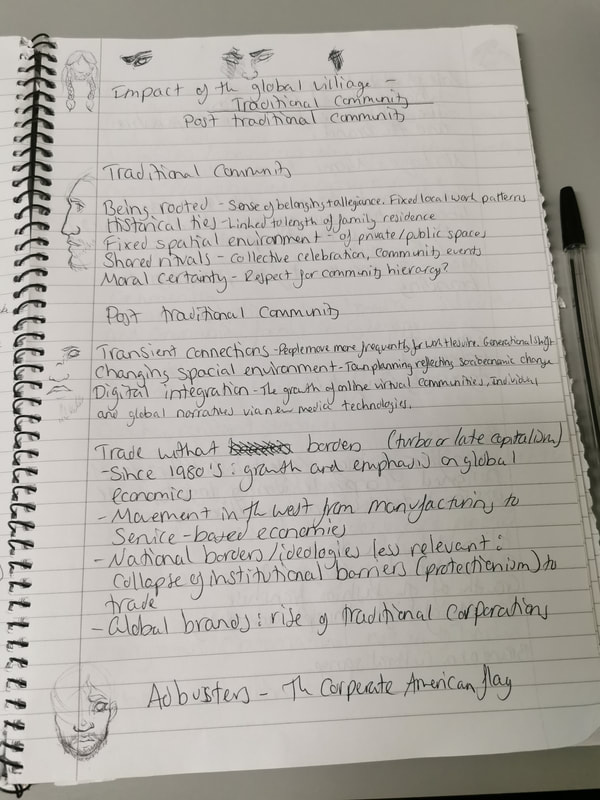 Impact of the global villiage -
Traditional Community
Post traditional community
Traditional Community
Being rooted - Sense of belonging + allegiance. Fixed local work patterns
Historical ties - Linked to length of family residence
Fixed spatial environment - of private/public spaces
Shared rituals - collective celebration, Community events
Moral Certainty - Respect for community hierarchy?
Post traditional Community
Transient connections - People move more frequently for work + leisure. Generational shift
Changing spacial environment - Town planning reflecting socioeconomic change
Digital integration - The growth of online virtual communities, individual
and global narratives via new media technologies.
Trade without borders (turbo or late capitalism)
- Since 1980's: growth and emphasis on global
economics
- Movement in the west from manufacturing to
Service-based economies
- National borders/ideologies less relevant:
Collapse of institutional barriers (protectionism) to
trade
- Global brands: rise of traditional corporations
Adbusters - The Corperate American flag